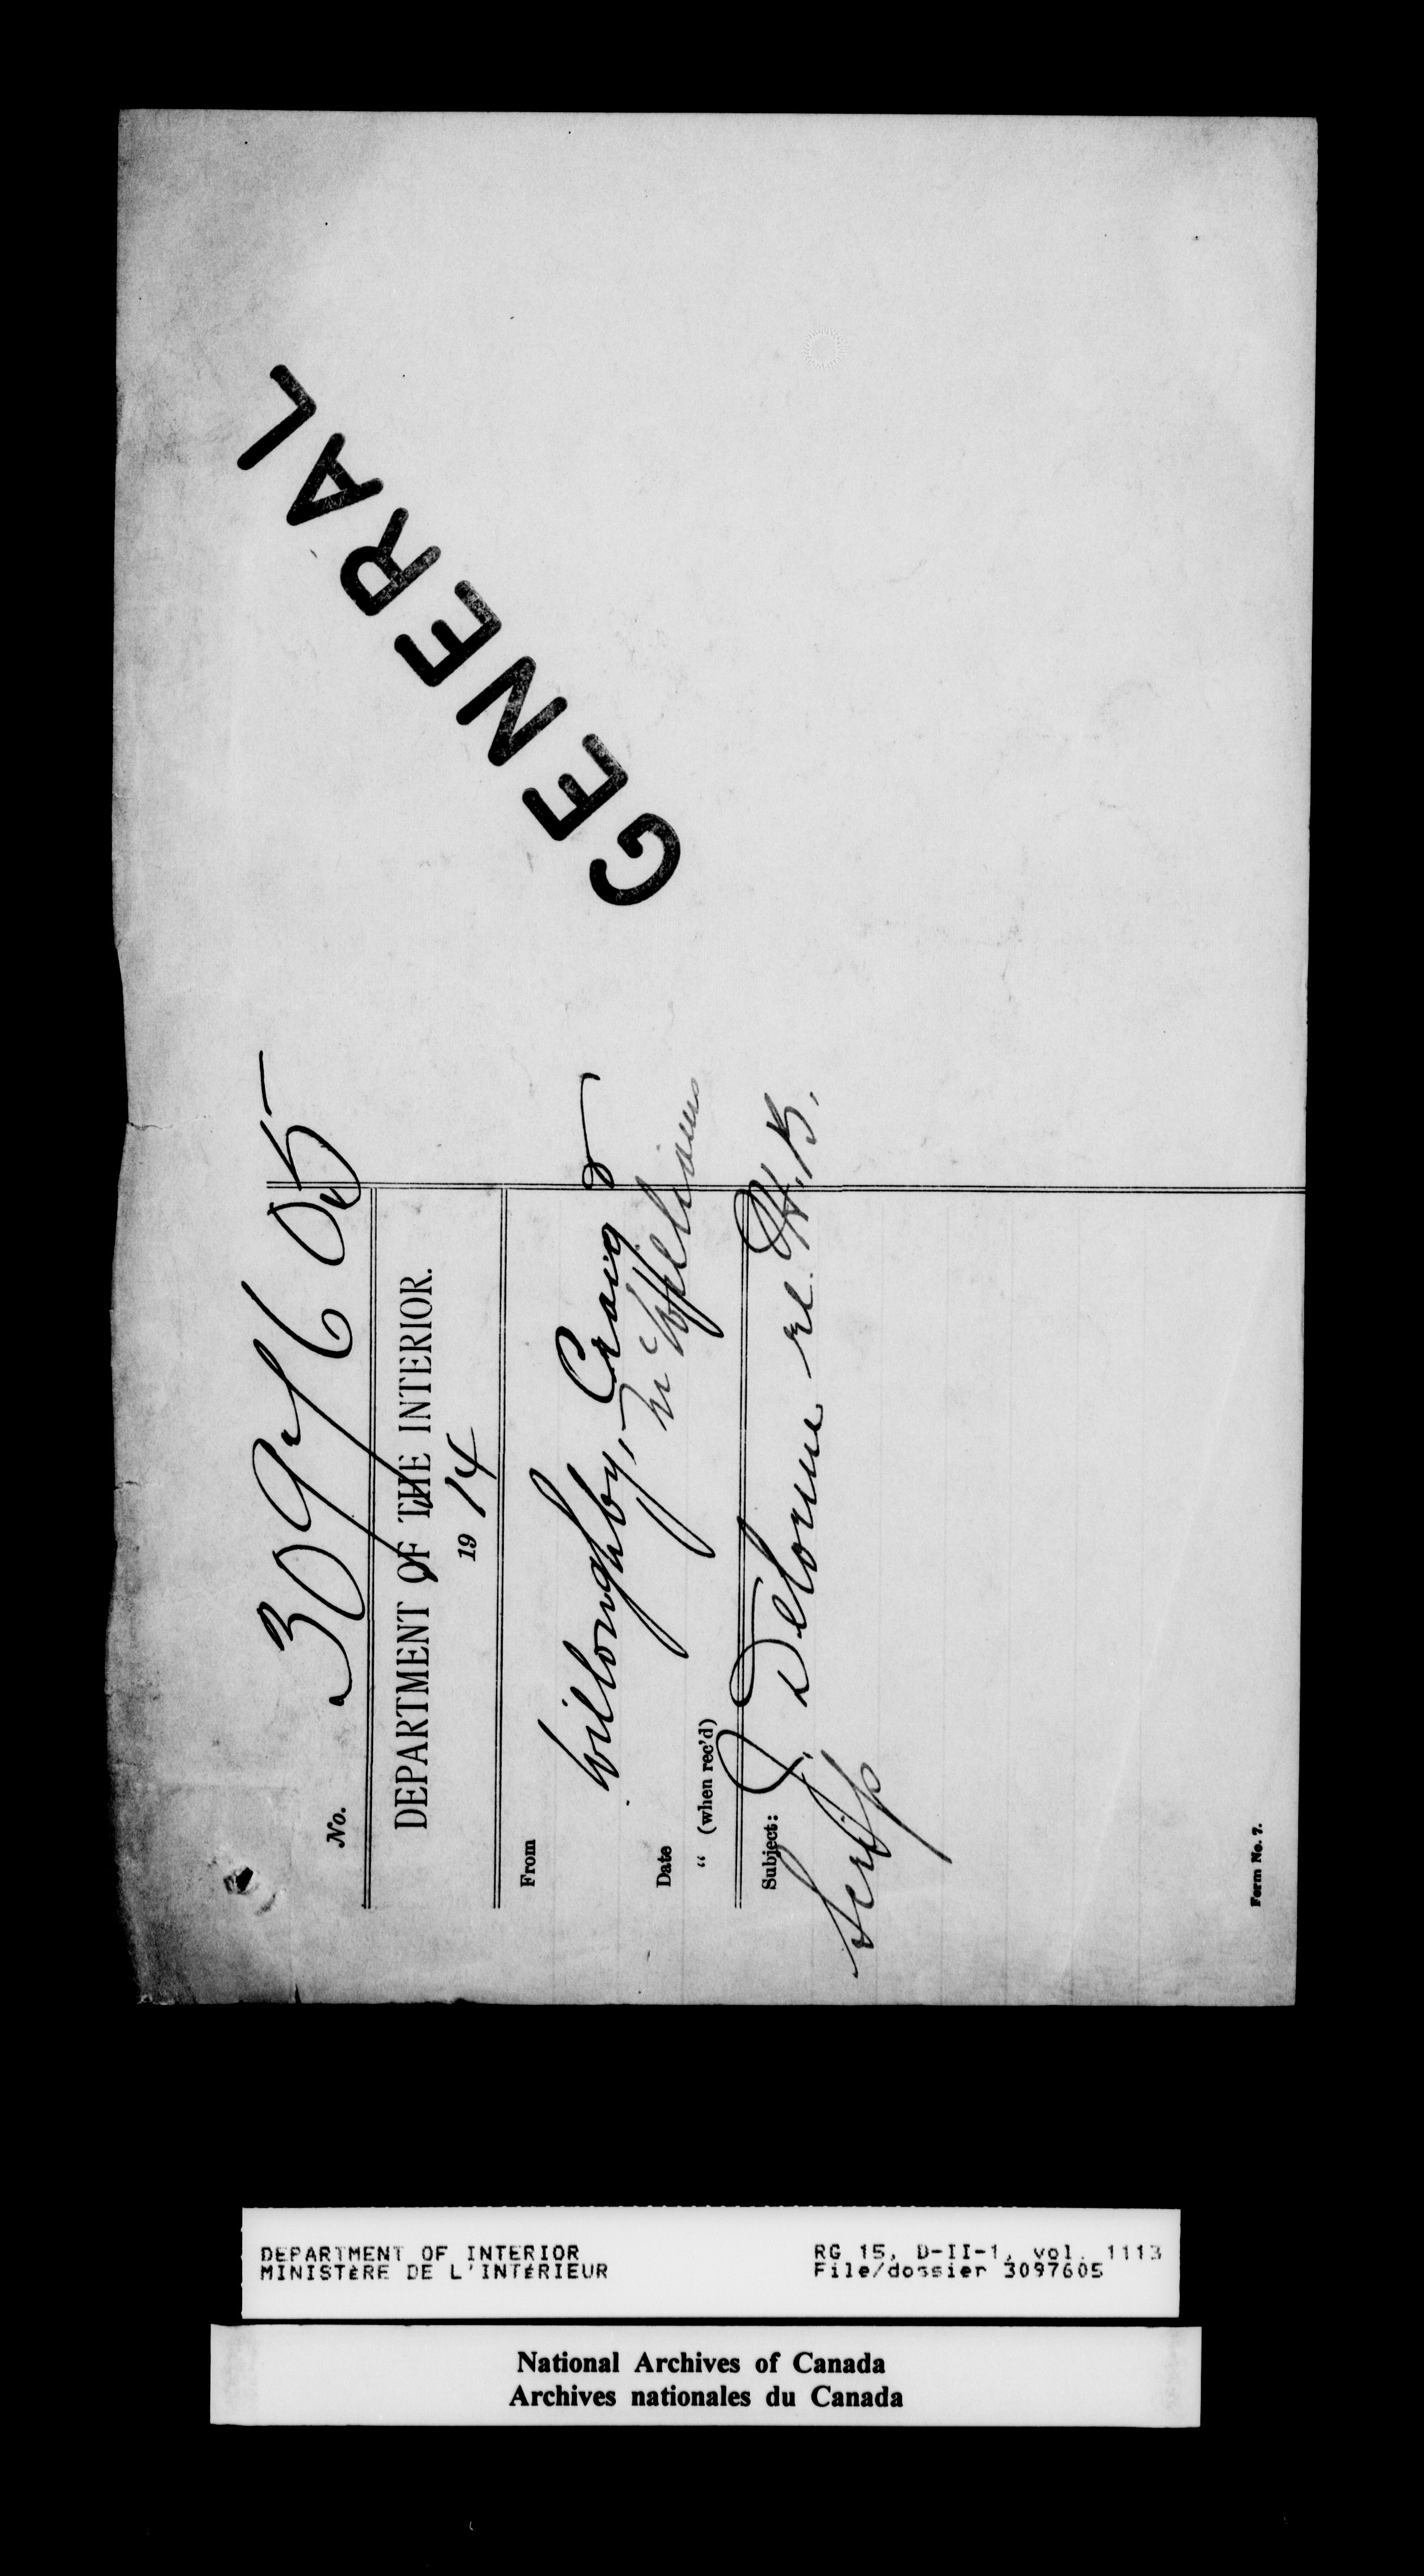 No. 3097605
DEPARTMENT OF THE INTERIOR.
1914
From
Willoughby, Craig &
McWilliams
Date
" (when rec'd)
Subject: J. Delorme re H. B.
Scrip
Form No. 7.
GENERAL
DEPARTMENT OF INTERIOR
MINISTÈRE DE L'INTÉRIEUR
RG 15, D-II-1, vol. 1113
File/dossier 3097605
National Archives of Canada
Archives nationales du Canada